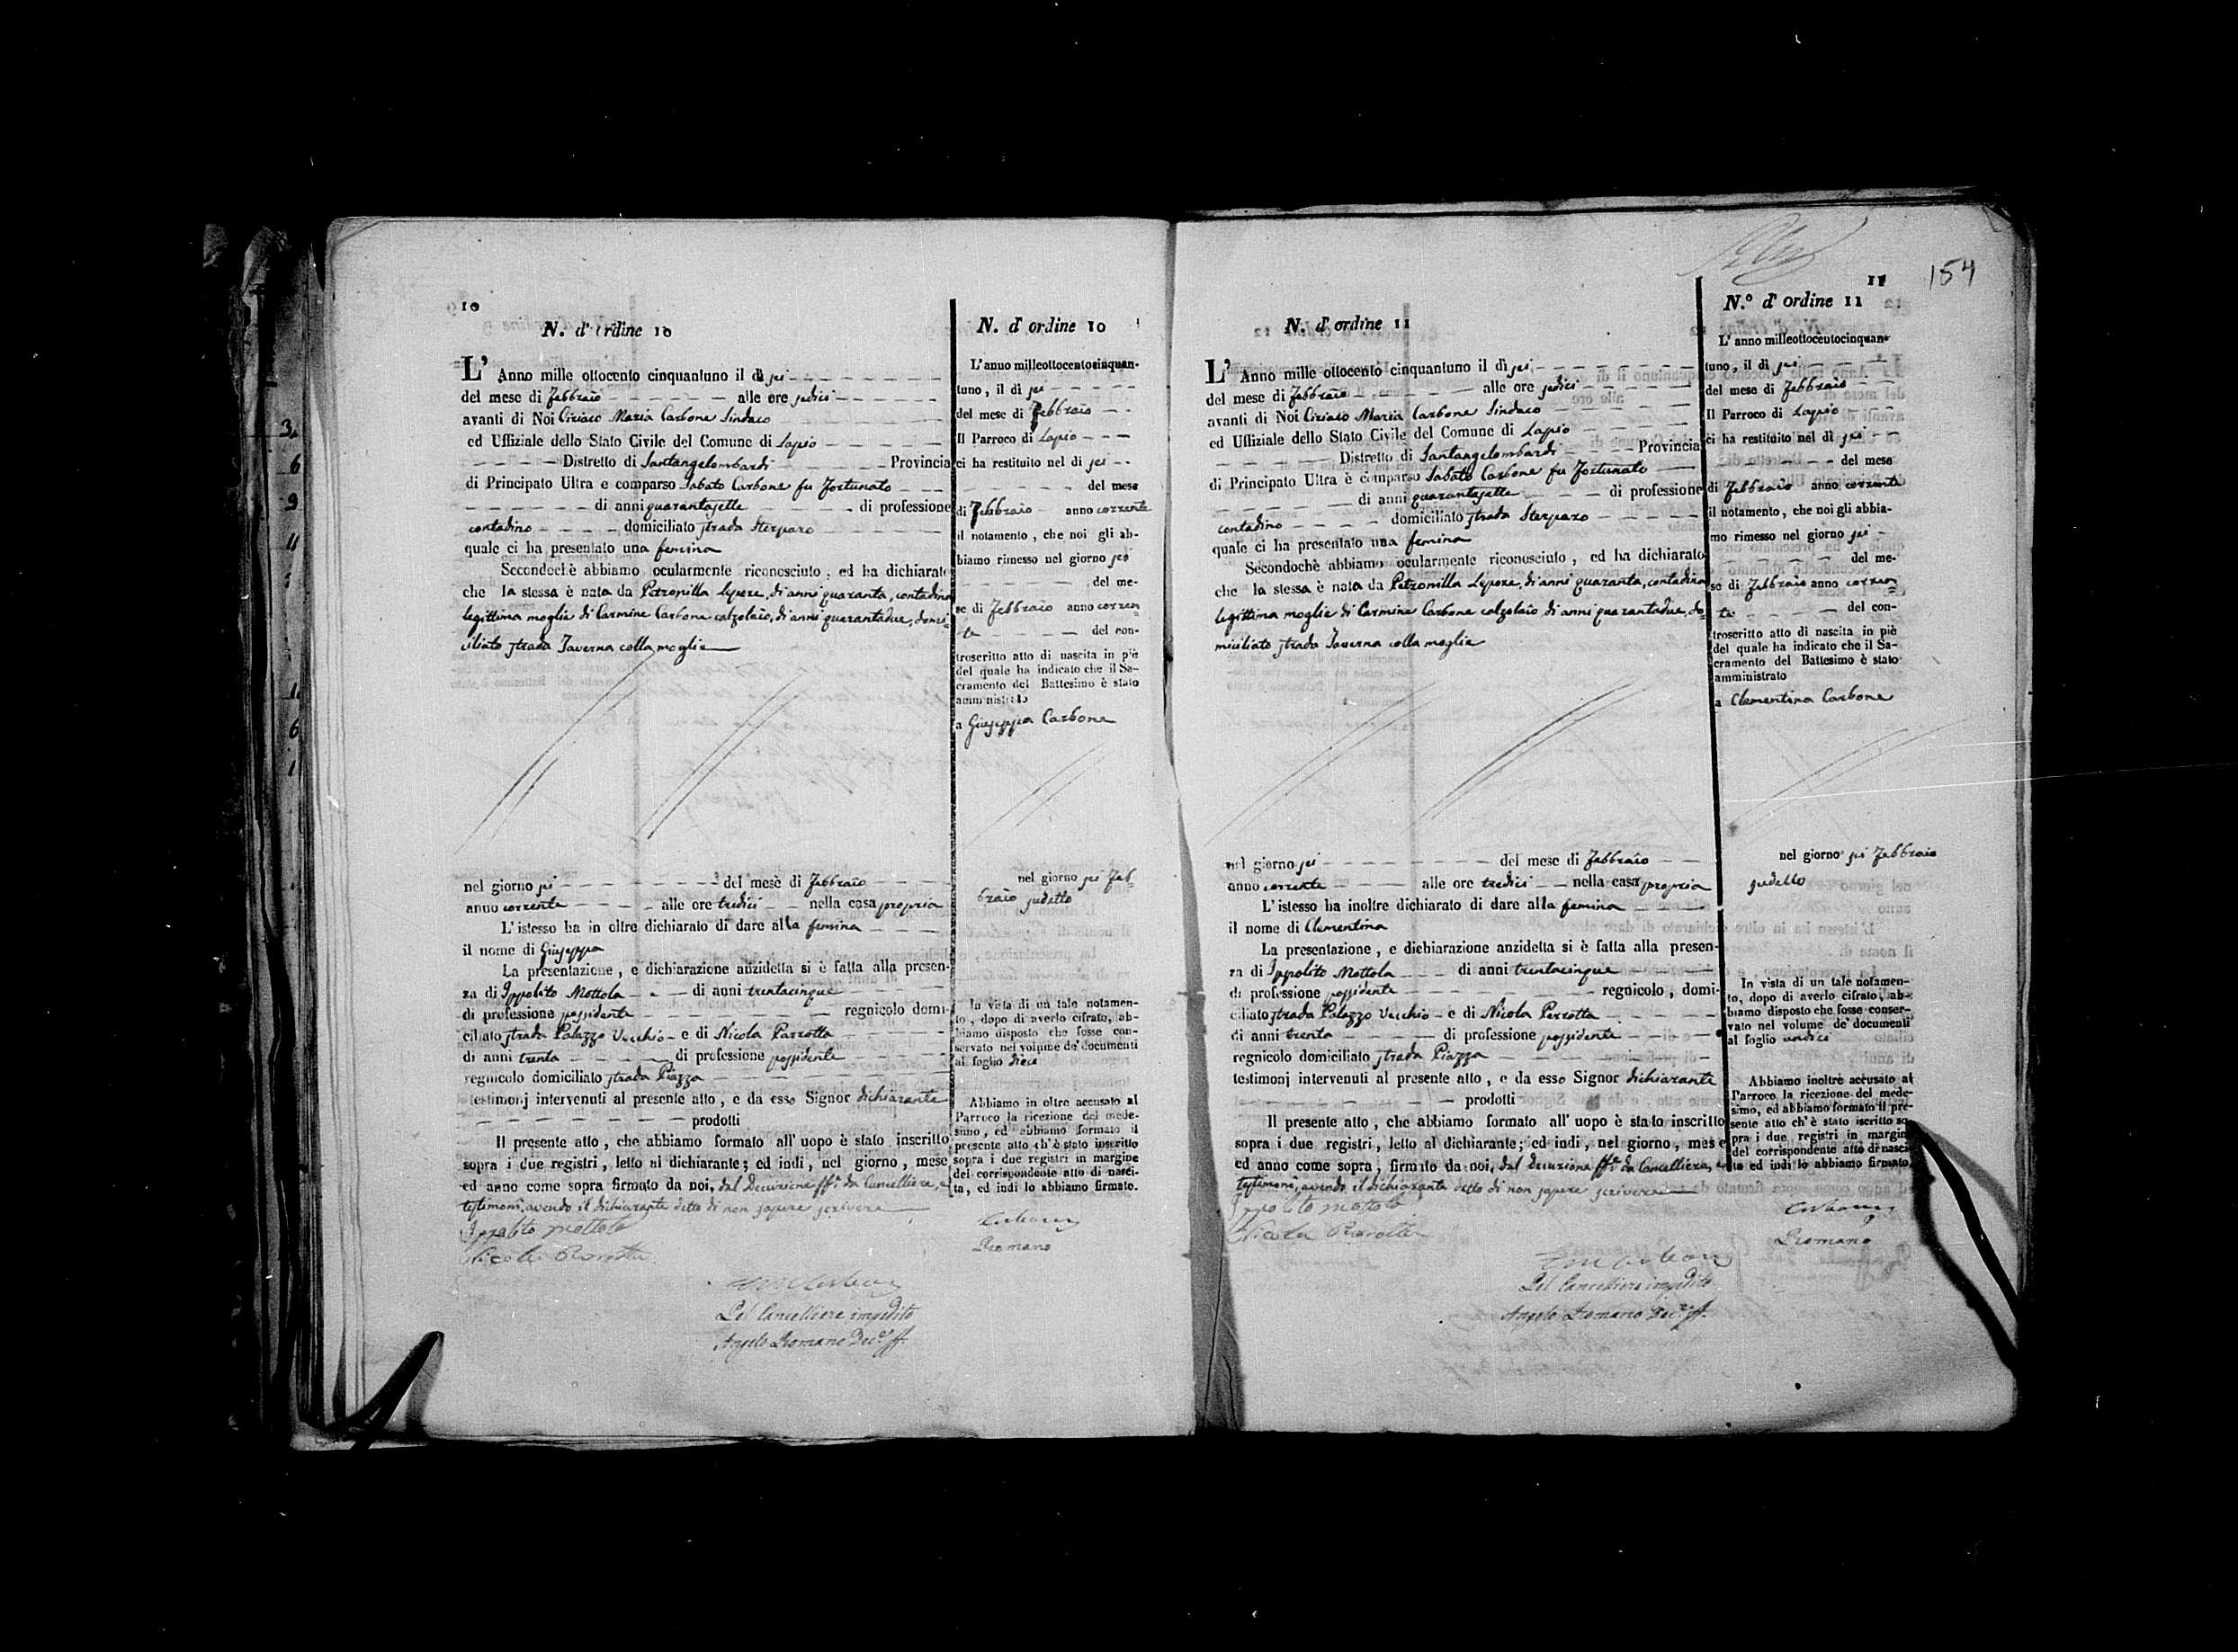 10
N. d' ordine 10
L' Anno mille ottocento cinquantuno il dì sei
del mese di Febbraio alle ore sedici
avanti di Noi Ciriaco Maria Carbone Sindaco
ed Uffiziale dello Stato Civile del Comune di Lapio
Distretto di Santangelombardi Provincia
di Principato Ultra e comparso Sabato Carbone fu Fortunato
di anni quarantasette di professione
contadino domiciliato strada Sterparo
quale ci ha presentato una femina
Secondochè abbiamo ocularmente riconosciuto, ed ha dichiarato
che la stessa è nata da Petronilla Lepore, di anni quaranta, contadina
legittima moglie di Carmine Carbone calzolaio, di anni quarantadue, domi=
ciliato strada Taverna colla moglie
nel giorno sei del mese di Febbraio
anno corrente alle ore tredici nella casa propria
L' istesso ha in oltre dichiarato di dare alla femina
il nome di Giuseppa
La presentazione, e dichiarazione anzidetta si è fatta alla presen-
za di Ippolito Mottola di anni trentacinque
di professione possidente regnicolo domi-
ciliato strada Palazzo Vecchio e di Nicola Parrotta
di anni trenta di professione possidente
regnicolo domiciliato strada Piazza
testimonj intervenuti al presente atto, e da esso Signor dichiarante
prodotti
Il presente atto, che abbiamo formato all' uopo è stato inscritto
sopra i due registri, letto al dichiarante; ed indi, nel giorno, mese
ed anno come sopra firmato da noi, dal Decurione ff. da Cancelliere, e
testimonî, avendo il dichiarante detto di non sapere scrivere
Ippolito Mottola
Nicola
Pel Cancelliere impedito
Angelo Romano Dec.e ff.
N. d' ordine 10
L' anno milleottocentocinquan-
tuno, il dì sei
del mese di Febbraio
Il Parroco di Lapio
ci ha restituito nel dì sei
del mese
di Febbraio anno corrente
il notamento, che noi gli ab-
biamo rimesso nel giorno sei
del me-
se di Febbraio anno corren
te del con-
troscritto atto di nascita in piè
del quale ha indicato che il Sa-
cramento del Battesimo è stato
amministrato
a Giuseppa Carbone
nel giorno sei Feb=
braio sudetto
In vista di un tale notamen-
to, dopo di averlo cifrato, ab-
biamo disposto che fosse con-
servato nel volume de' documenti
al foglio dieci
Abbiamo in oltre accusato al
Parroco la ricezione del mede-
simo, ed abbiamo formato il
presente atto ch' è stato inscritto
sopra i due registri in margine
del corrispondente atto di nasci-
ta, ed indi lo abbiamo firmato.
Carbone
Romano
154
11
N. d' ordine 11
L' Anno mille ottocento cinquantuno il dì sei
del mese di Febbraio alle ore sedici
avanti di Noi Ciriaco Maria Carbone Sindaco
ed Uffiziale dello Stato Civile del Comune di Lapio
Distretto di Santangelombardi Provincia
di Principato Ultra è comparso Sabato Carbone fu Fortunato
di anni quarantasette di professione
contadino domiciliato strada Sterparo
quale ci ha presentato una femina
Secondochè abbiamo ocularmente riconosciuto, ed ha dichiarato
che la stessa è nata da Petronilla Lepore, di anni quaranta, contadina
legittima moglie di Carmine Carbone calzolaio di anni quarantadue, do=
miciliato strada Taverna colla moglie
nel giorno sei del mese di Febbraio
anno corrente alle ore tredici nella casa propria
L' istesso ha inoltre dichiarato di dare alla femina
il nome di Clementina
La presentazione, e dichiarazione anzidetta si è fatta alla presen-
za di Ippolito Mottola di anni trentacinque
di professione possidente regnicolo, domi-
ciliato strada Palazzo Vecchio e di Nicola Perrotta
di anni trenta di professione possidente
regnicolo domiciliato strada Piazza
testimonj intervenuti al presente atto, e da esso Signor dichiarante
prodotti
Il presente atto, che abbiamo formato all' uopo è stato inscritto
sopra i due registri, letto al dichiarante; ed indi, nel giorno, mese
ed anno come sopra; firmato da noi, dal Decurione ff. da Cancelliere, e
testimonî, avendo il dichiarante detto di non sapere scrivere
Ippolito Mottola
Nicola
Pel Cancelliere impedito
Angelo Romano Dec.e ff.
N.° d' ordine 11
L' anno milleottocentocinquan-
tuno, il dì sei
del mese di Febbraio
Il Parroco di Lapio
ci ha restituito nel dì sei
del mese
di Febbraio anno corrente
il notamento, che noi gli abbia-
mo rimesso nel giorno sei
del me-
se di Febbraio anno corren
te del con-
troscritto atto di nascita in piè
del quale ha indicato che il Sa-
cramento del Battesimo è stato
amministrato
a Clementina Carbone
nel giorno sei Febbraio
sudetto
In vista di un tale notamen-
to, dopo di averlo cifrato, ab-
biamo disposto che fosse conser-
vato nel volume de' documenti
al foglio undici
Abbiamo inoltre accusato al
Parroco la ricezione del mede-
simo, ed abbiamo formato il pre-
sente atto ch' è stato iscritto so-
pra i due registri in margine
del corrispondente atto di nasci-
ta ed indi lo abbiamo firmato.
Carbone
Romano